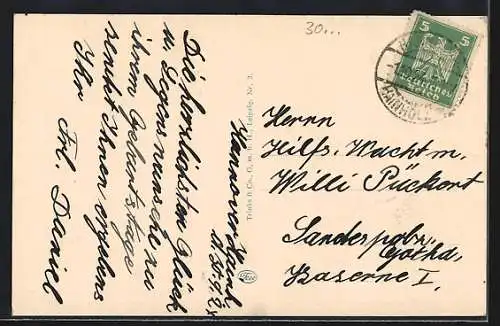 30...
Die herzlichsten Glück
u. Segenswünsche zu
ihrem Geburtstage
sendet Ihnen ergebenst
Ihr
Frl. Daniel
Hannover Hainh.
Trinks & Co., G. m. b. H., Leipzig. Nr. 3.
Trinks
5 5
Deutsches
Reich
HAINHOLZ
Herrn
Hilfs. Wachtm.
Willi Pückert
Gotha,
Kaserne I.